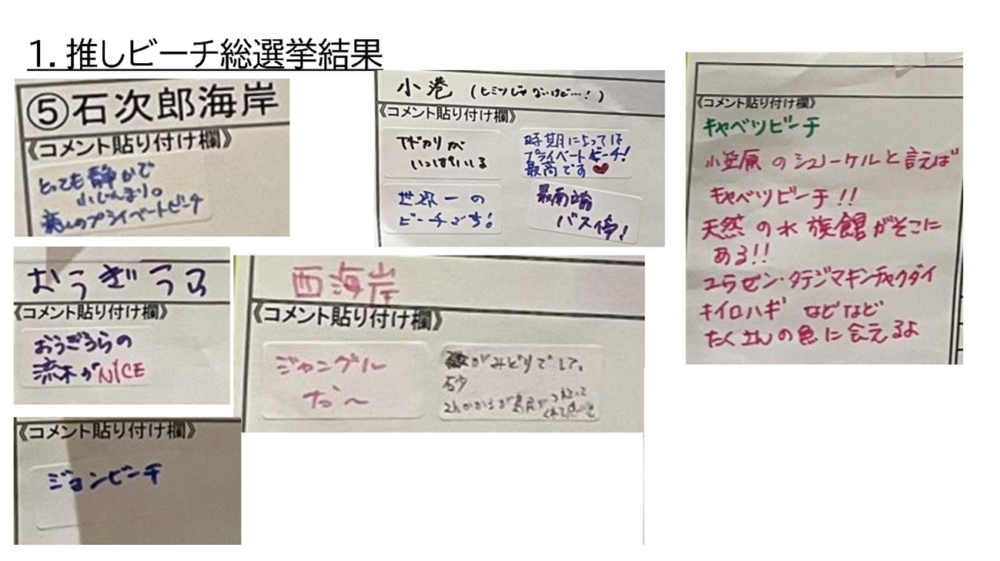 1. 推しビーチ総選挙結果
⑤石次郎海岸
《コメント貼り付け欄》
とっても静かで
小じんまり。
癒しのプライベートビーチ
小巻 (ヒミツじゃないけど…!)
《コメント貼り付け欄》
ヤドカリが
いっぱいいる
時期によっては
プライベートビーチ!
最高です♥
世界一の
ビーチです!
最南端
バス停!
《コメント貼り付け欄》
キャベツビーチ
小笠原のシュノーケルと言えば
キャベツビーチ!!
天然の水族館がそこに
ある!!
ユウゼン・タテジマキンチャクダイ
キイロハギ などなど
たくさんの魚に会えるよ
おうぎうら
《コメント貼り付け欄》
おうぎうらの
流木がNICE
西海岸
《コメント貼り付け欄》
ジャングル
だ〜
がみどりでした。
砂
《コメント貼り付け欄》
ジョンビーチ